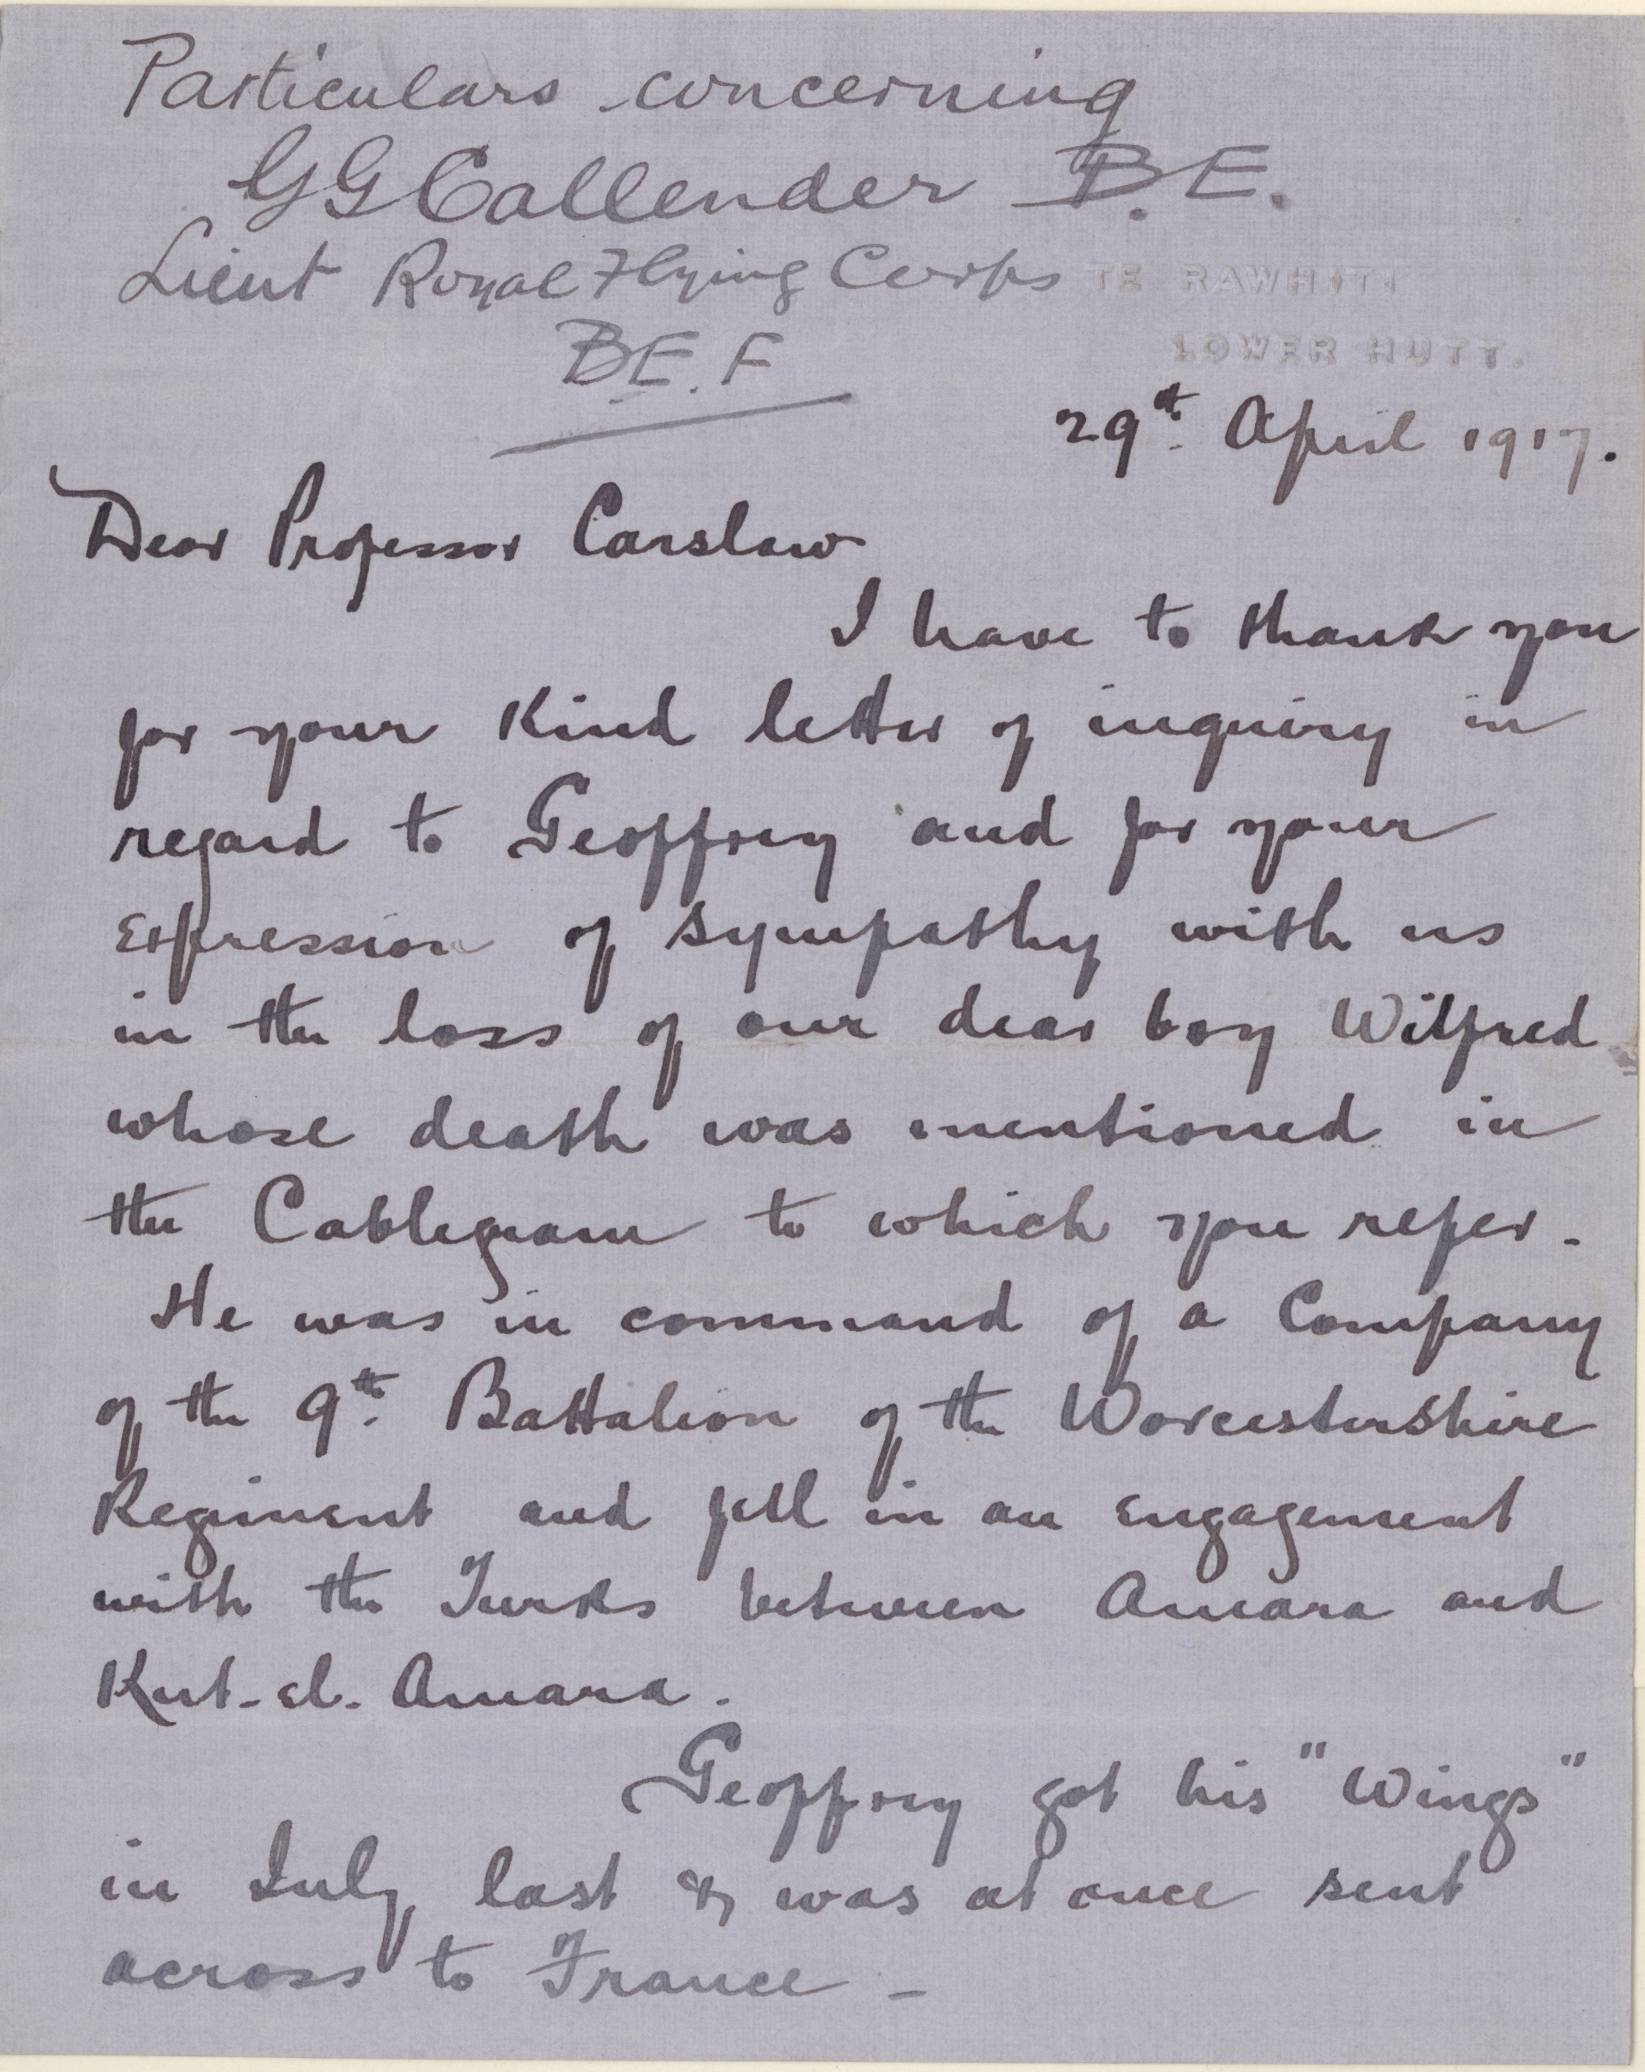 Particulars concerning
G G Callender B.E.
Lieut Royal Flying Corps
B.E.F
TE RAWHITI
LOWER HUTT.
29th. April 1917.
Dear Professor Carslaw
I have to thank you
for your kind letter of inquiry in
regard to Geoffrey and for your
expression of sympathy with us
in the loss of our dear boy Wilfred
whose death was mentioned in
the Cablegram to which you refer.
He was in command of a Company
of the 9th. Battalion of the Worcestershire
Regiment and fell in an engagement
with the Turks between Amara and
Kut-el-Amara.
Geoffrey got his "Wings"
in July last & was at once sent
across to France -